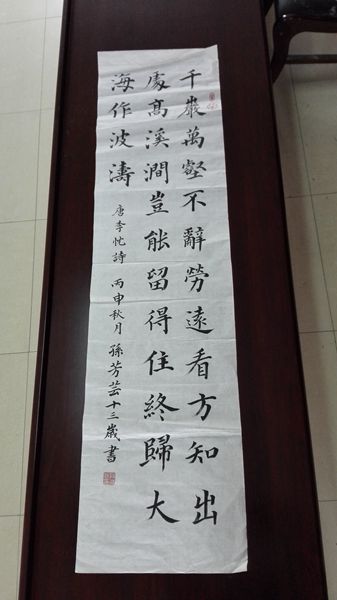 千巖萬壑不辭勞遠看方知出
處高溪澗豈能留得住終歸大
海作波濤
唐李忱詩 丙申秋月 孫芳芸十三歲書